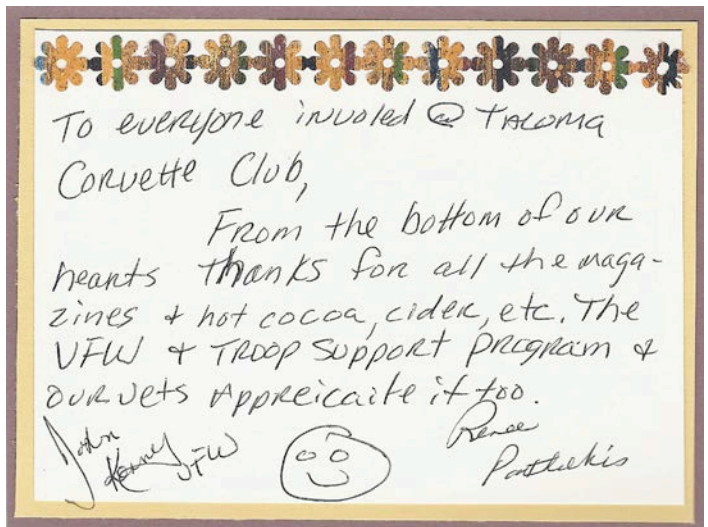 To everyone involed @ Tacoma
Corvette Club,
From the bottom of our
hearts thanks for all the maga-
zines & hot cocoa, cider, etc. The
VFW & Troop Support Program &
our vets Appreicaite it too.
John
Renee
VFW